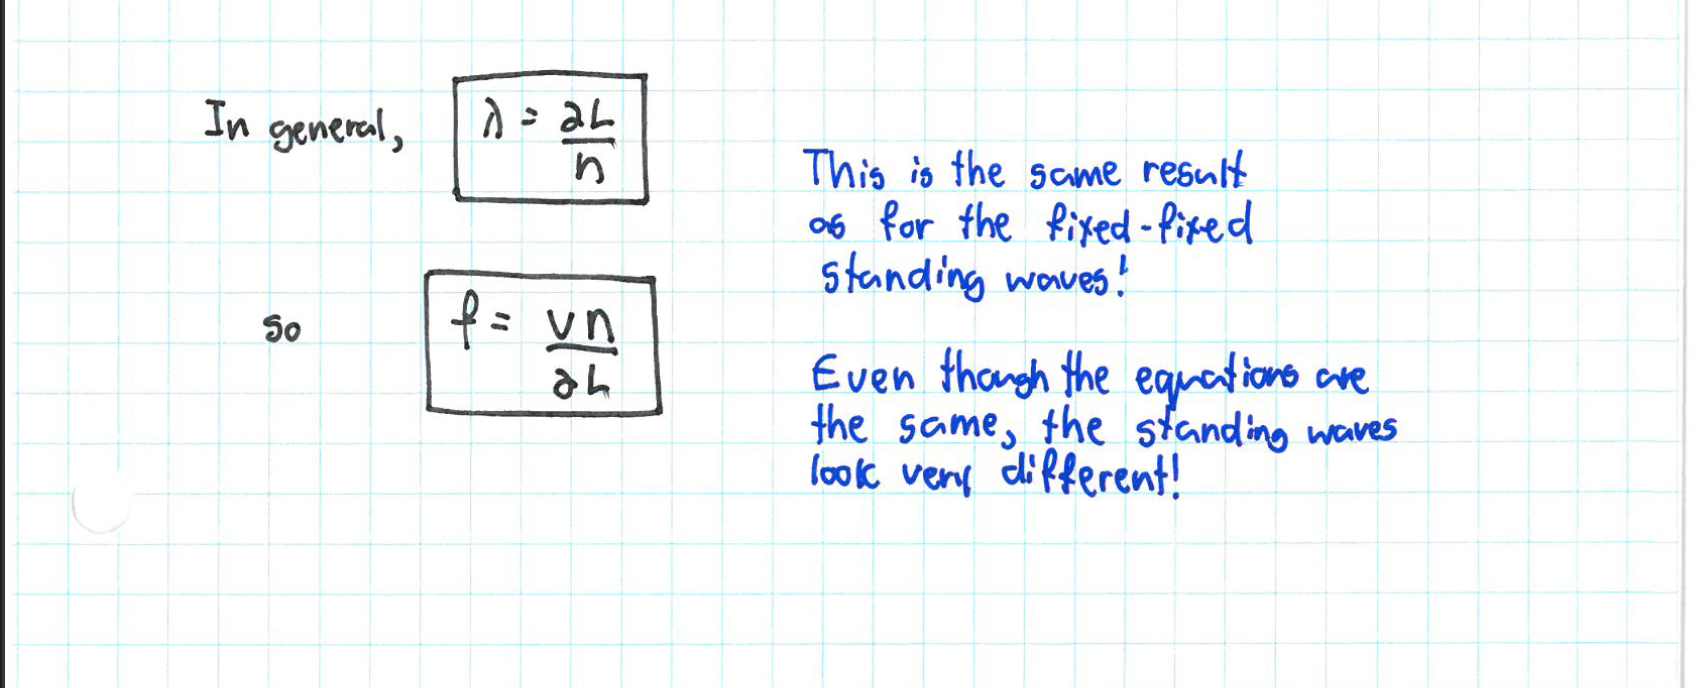 In general, λ = 2L/n
This is the same result
as for the fixed-fixed
standing waves!
so f = vn/2L
Even though the equations are
the same, the standing waves
look very different!